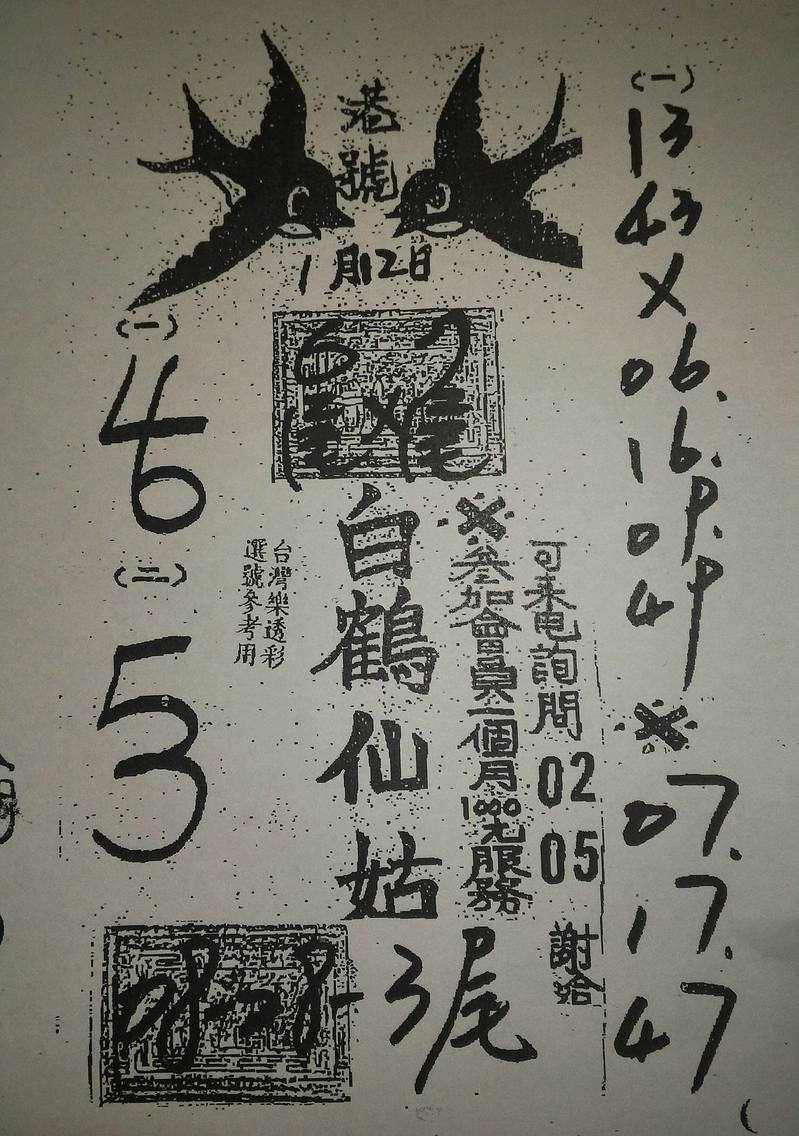 港號
1月12日
(一)
13
43
X
06.
16.
09.
49
※
07.
17.
47
可来电詢問
02
05
謝洽
※參加會員一個月1000元服務
白鶴仙姑
台灣樂透彩
選號參考用
(一)
46
(二)
53
3尾